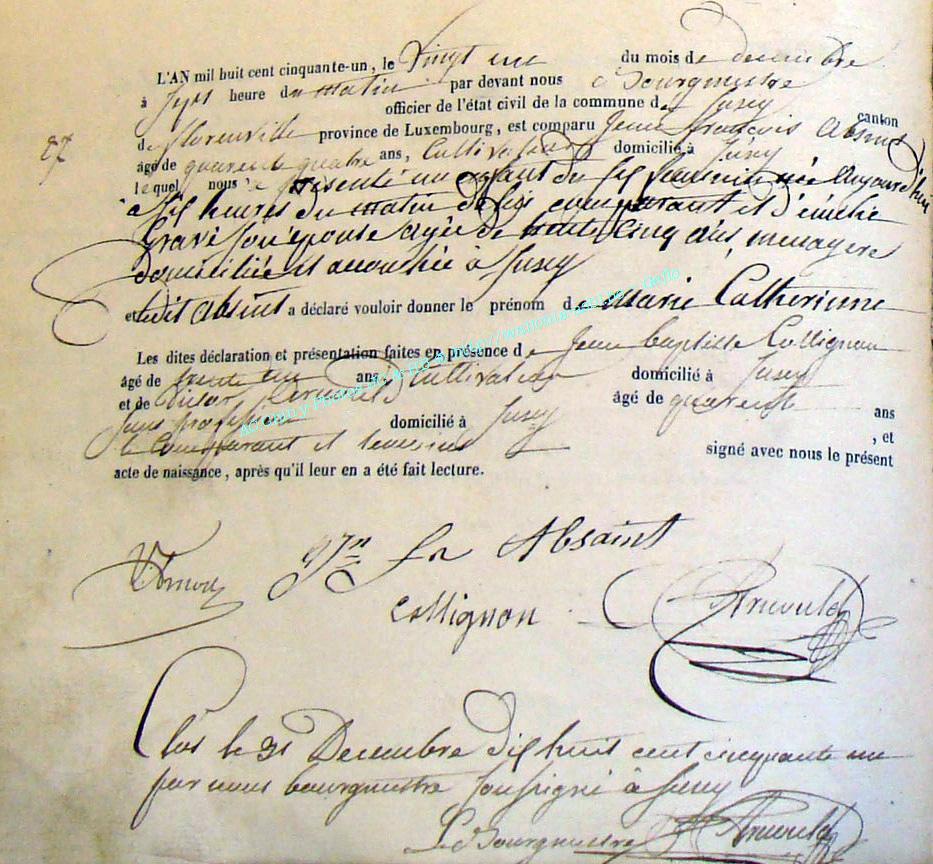 L'AN mil huit cent cinquante-un, le vingt un du mois de decembre
à heure du matin par devant nous Bourgmestre
officier de l'état civil de la commune de Jusey canton
de Florenville province de Luxembourg, est comparu Jean François Absint
27
âgé de quarente quatre ans, Cultivateur domicilié à Jusey
lequel nous a présenté un enfant du sexe feminin née aujourd'hui
à six heures du matin de lui comparant et d'émelie
Gravé son épouse agée de trente cinq ans, menagere
domiciliée et accouchée à Jusey
et ledit Absint a déclaré vouloir donner le prénom de Marie Catherinne
Les dites déclaration et présentation faites en présence de Jean Baptiste Collignon
âgé de trente un ans, Cultivateur domicilié à Jusey
et de âgé de quarente ans
sans profession domicilié à Jusey , et
le Comparant et temoins signé avec nous le présent
acte de naissance, après qu'il leur en a été fait lecture.
fr Absaint
Collignon Arnould
Clos le 31 Decembre dix huit cent cinquante un
par nous bourgmestre soussigné à Jusey
Le Bourgmestre Arnould